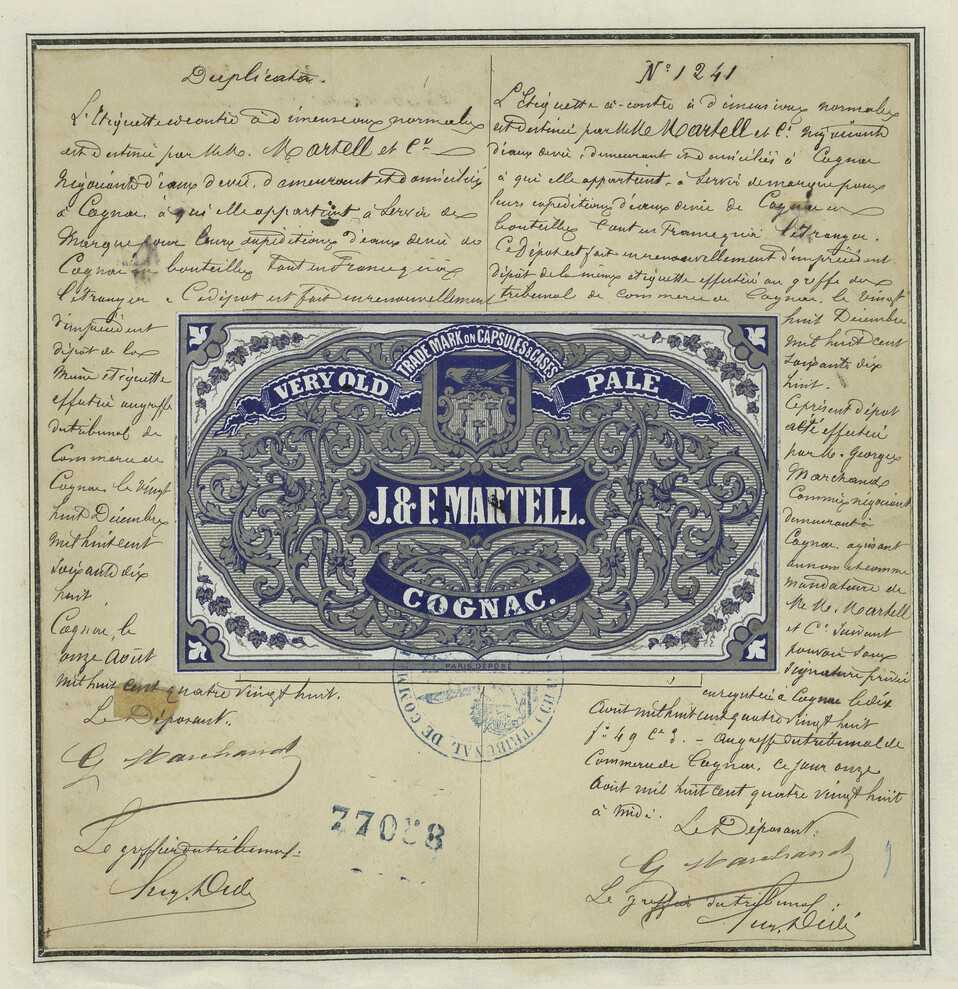 Duplicata.
L'Etiquette ci-contre à dimensions normales
est destinée par M.M. Martell et Cie
Négociants d'eaux de vie, demeurant et domiciliés
à Cognac, à qui elle appartient, à servir de
Marque pour leurs expéditions d'eaux de vie de
Cognac en bouteilles tant en France qu'à
l'étranger. Ce dépôt est fait en renouvellement
d'un précédent
dépôt de la
même étiquette
effectué au greffe
du tribunal de
Commerce de
Cognac le vingt
huit Décembre
mil huit cent
soixante dix
huit.
Cognac, le
onze Août
mil huit cent quatre vingt huit.
Le Déposant.
G Marchand
Le greffier du tribunal:
N° 1241
L'Etiquette ci-contre à dimensions normales
est destinée par M.M. Martell et Cie Négociants
d'eaux de vie, demeurant et domiciliés à Cognac
à qui elle appartient, à servir de marque pour
leurs expéditions d'eaux de vie de Cognac en
bouteilles tant en France qu'à l'étranger.
Ce Dépôt est fait en renouvellement d'un précédent
dépôt de la même étiquette effectué au greffe du
tribunal de commerce de Cognac, le vingt
huit Décembre
mil huit cent
soixante dix
huit.
Ce présent dépôt
a été effectué
par M. Georges
Marchand
Commis négociant
demeurant à
Cognac agissant
au nom et comme
mandataire de
M.M. Martell
et Cie suivant
pouvoir sous
signature privée
enregistré à Cognac le dix
Août mil huit cent quatre vingt huit
fo 49 Ce 3. - Au greffe du tribunal de
Commerce de Cognac, ce jour onze
Août mil huit cent quatre vingt huit
à midi.
Le Déposant:
G Marchand
Le greffier du tribunal:
TRADE MARK ON CAPSULES & CASES
VERY OLD PALE
J. & F. MARTELL.
COGNAC.
PARIS, DÉPOSÉ
TRIBUNAL DE COMM
77088